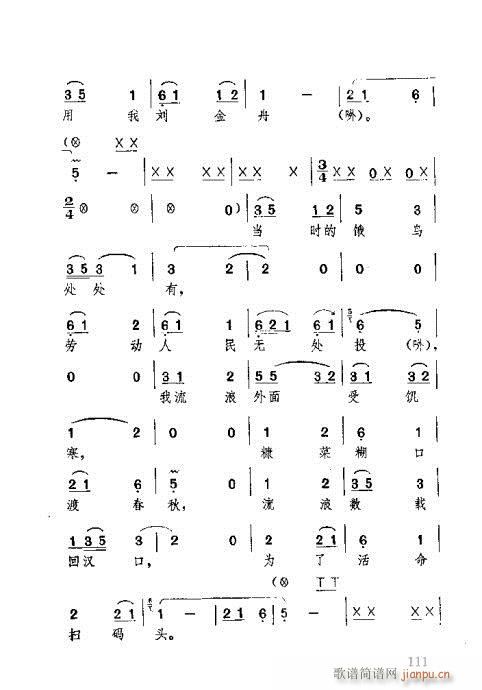 3 5 1 | 6 1 1 2 | 1 — | 2 1 6 |
用 我 刘 金 舟 (咻)。
(⊗ X X
5 — | X X X X | X X X | 3/4 X X 0 X 0 X |
2/4 ⊗ ⊗ | ⊗ 0) | 3 5 1 2 | 5 3 |
当 时 的 饿 鸟
3 5 3 1 | 3 2 | 2 0 | 0 0 |
处 处 有,
6 1 2 | 6 1 1 | 6 2 1 6 1 | 6 5 |
劳 动 人 民 无 处 投 (咻),
0 0 | 3 1 2 | 5 5 3 2 | 3 1 3 2 |
我 流 浪 外 面 受 饥
1 2 | 0 0 | 1 2 | 6 1 |
寒, 糠 菜 糊 口
2 1 6 | 5 0 | 1 2 | 3 5 2 1 |
渡 春 秋, 流 浪 数 载
1 3 5 3 | 2 0 | 0 2 1 | 6 1 |
回 汉 口, 为 了 活 命
(⊗ T T
2 2 1 | 1 — | 2 1 6 | 5 — | X X X X |
扫 码 头。
111
歌谱简谱网
jianpu.cn